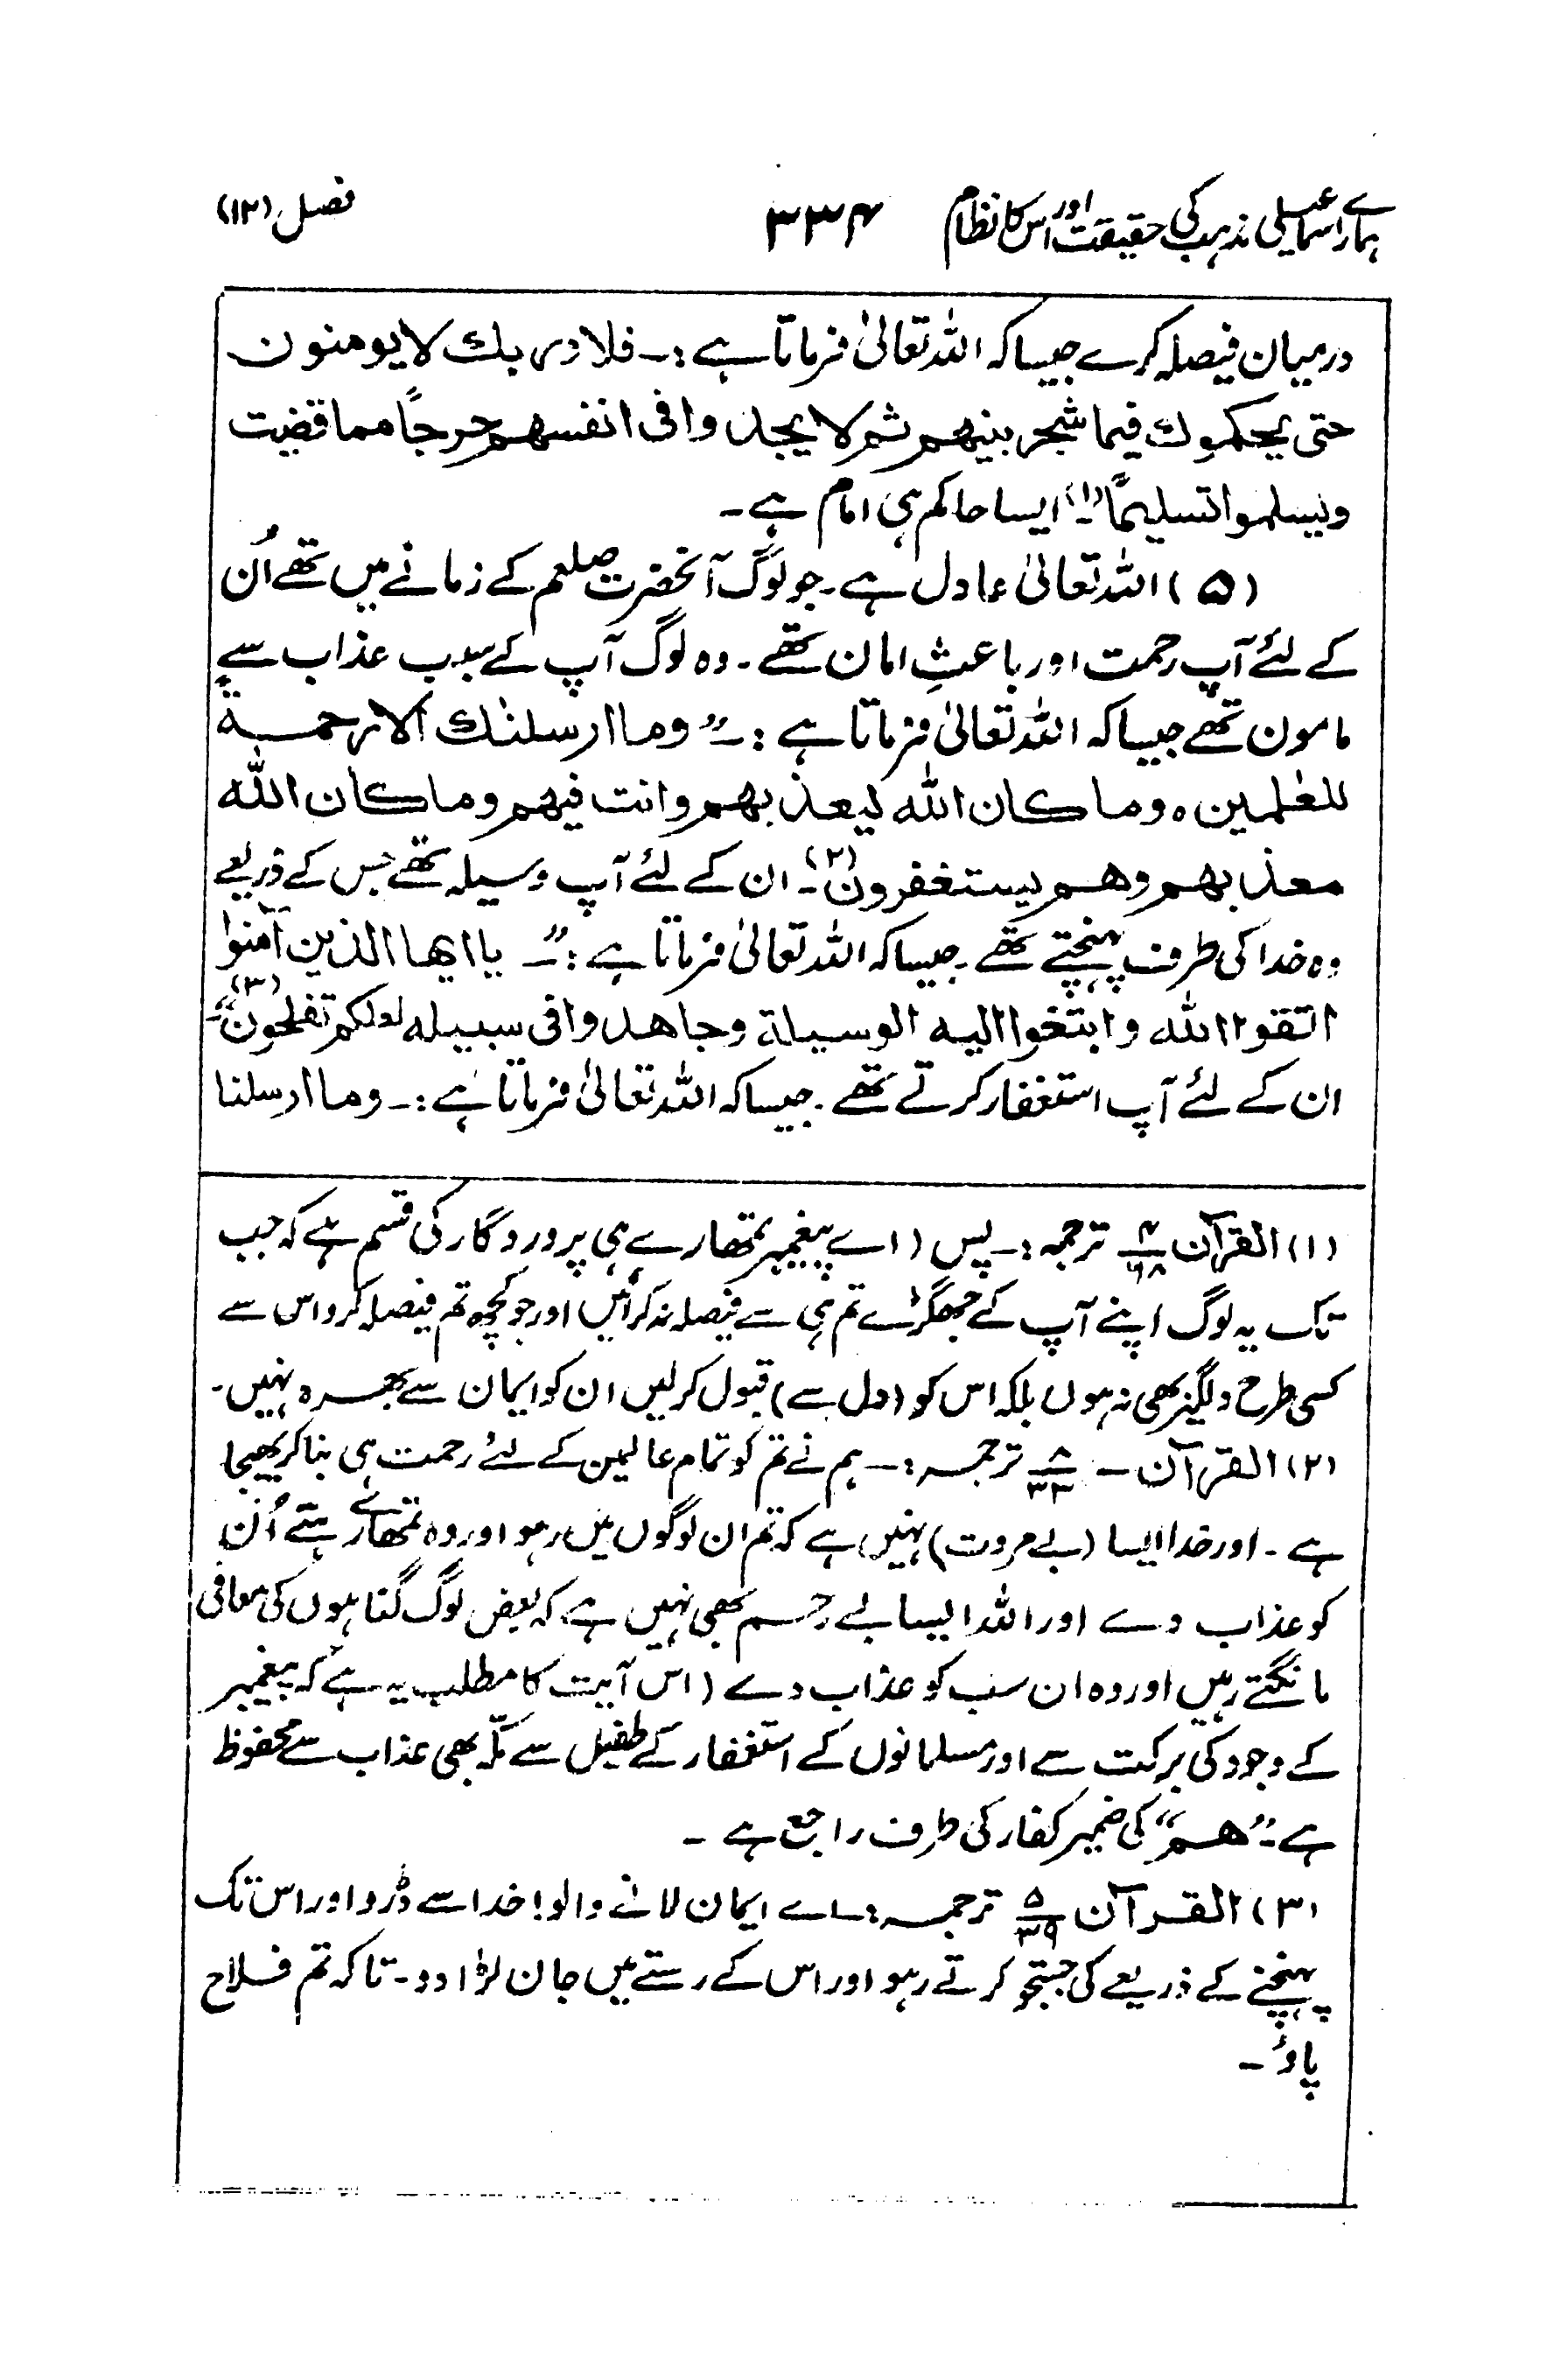 ہمارے اسماعیلی مذہب کی حقیقت اور اس کا نظام ۳۳۴ فصل (۱۲)
درمیان فیصلہ کرے جیسا کہ اللہ تعالیٰ فرماتا ہے :۔ فلا وربك لا یومنون
حتی یحکموك فیما شجر بینهم ثم لا یجدوا فی انفسهم حرجاً مما قضیت
ویسلموا تسلیماً"(۱)۔ ایسا حاکم ہی امام ہے ۔
(۵) اللہ تعالیٰ عادل ہے ۔ جو لوگ آنحضرت صلعم کے زمانے میں تھے اُن
کے لئے آپ رحمت اور باعثِ امان تھے ۔ وہ لوگ آپ کے سبب عذاب سے
مامون تھے جیسا کہ اللہ تعالیٰ فرماتا ہے :۔" وما ارسلنٰك الا رحمة
للعٰلمین ہ وما کان اللّٰه لیعذبهم وانت فیهم وما کان اللّٰه
معذبهم وهم یستغفرون(۲)۔ ان کے لئے آپ وسیلہ تھے جس کے ذریعے
وہ خدا کی طرف پہنچتے تھے ۔ جیسا کہ اللہ تعالیٰ فرماتا ہے :۔" یا ایها الذین آمنوا
اتقوا اللّٰه وابتغوا الیه الوسیلة وجاهدوا فی سبیله لعلکم تفلحون"(۳)۔
ان کے لئے آپ استغفار کرتے تھے ۔ جیسا کہ اللہ تعالیٰ فرماتا ہے :۔ وما ارسلنا
(۱) القرآن ۴/۶۸ ترجمہ :۔ پس (اے پیغمبر تمھارے ہی پروردگار کی قسم ہے کہ جب
تک یہ لوگ اپنے آپ کے جھگڑے تم ہی سے فیصلہ نہ کرائیں اور جو کچھ تم فیصلہ کرو اس سے
کسی طرح دلگیر بھی نہ ہوں بلکہ اس کو (دل سے) قبول کرلیں ان کو ایمان سے بھرہ نہیں ۔
(۲) القرآن ۔ ۸/۳۳ ترجمہ :۔ ہم نے تم کو تمام عالمین کے لئے رحمت ہی بنا کر بھیجا
ہے ۔ اور خدا ایسا (بے مروت) نہیں ہے کہ تم ان لوگوں میں رہو اور وہ تمھارے رہتے اُن
کو عذاب دے اور اللہ ایسا بے رحم بھی نہیں ہے کہ بعض لوگ گناہوں کی معافی
مانگتے رہیں اور وہ ان سب کو عذاب دے (اس آیت کا مطلب یہ ہے کہ پیغمبر
کے وجود کی برکت سے اور مسلمانوں کے استغفار کے طفیل سے مکّہ بھی عذاب سے محفوظ
ہے ۔ "هم" کی ضمیر کفار کی طرف راجع ہے ۔
(۳) القرآن ۵/۳۹ ترجمہ :۔ اے ایمان لانے والو! خدا سے ڈرو اور اس تک
پہنچنے کے ذریعے کی جستجو کرتے رہو اور اس کے رستے میں جان لڑا دو ۔ تاکہ تم فلاح
پاؤ ۔